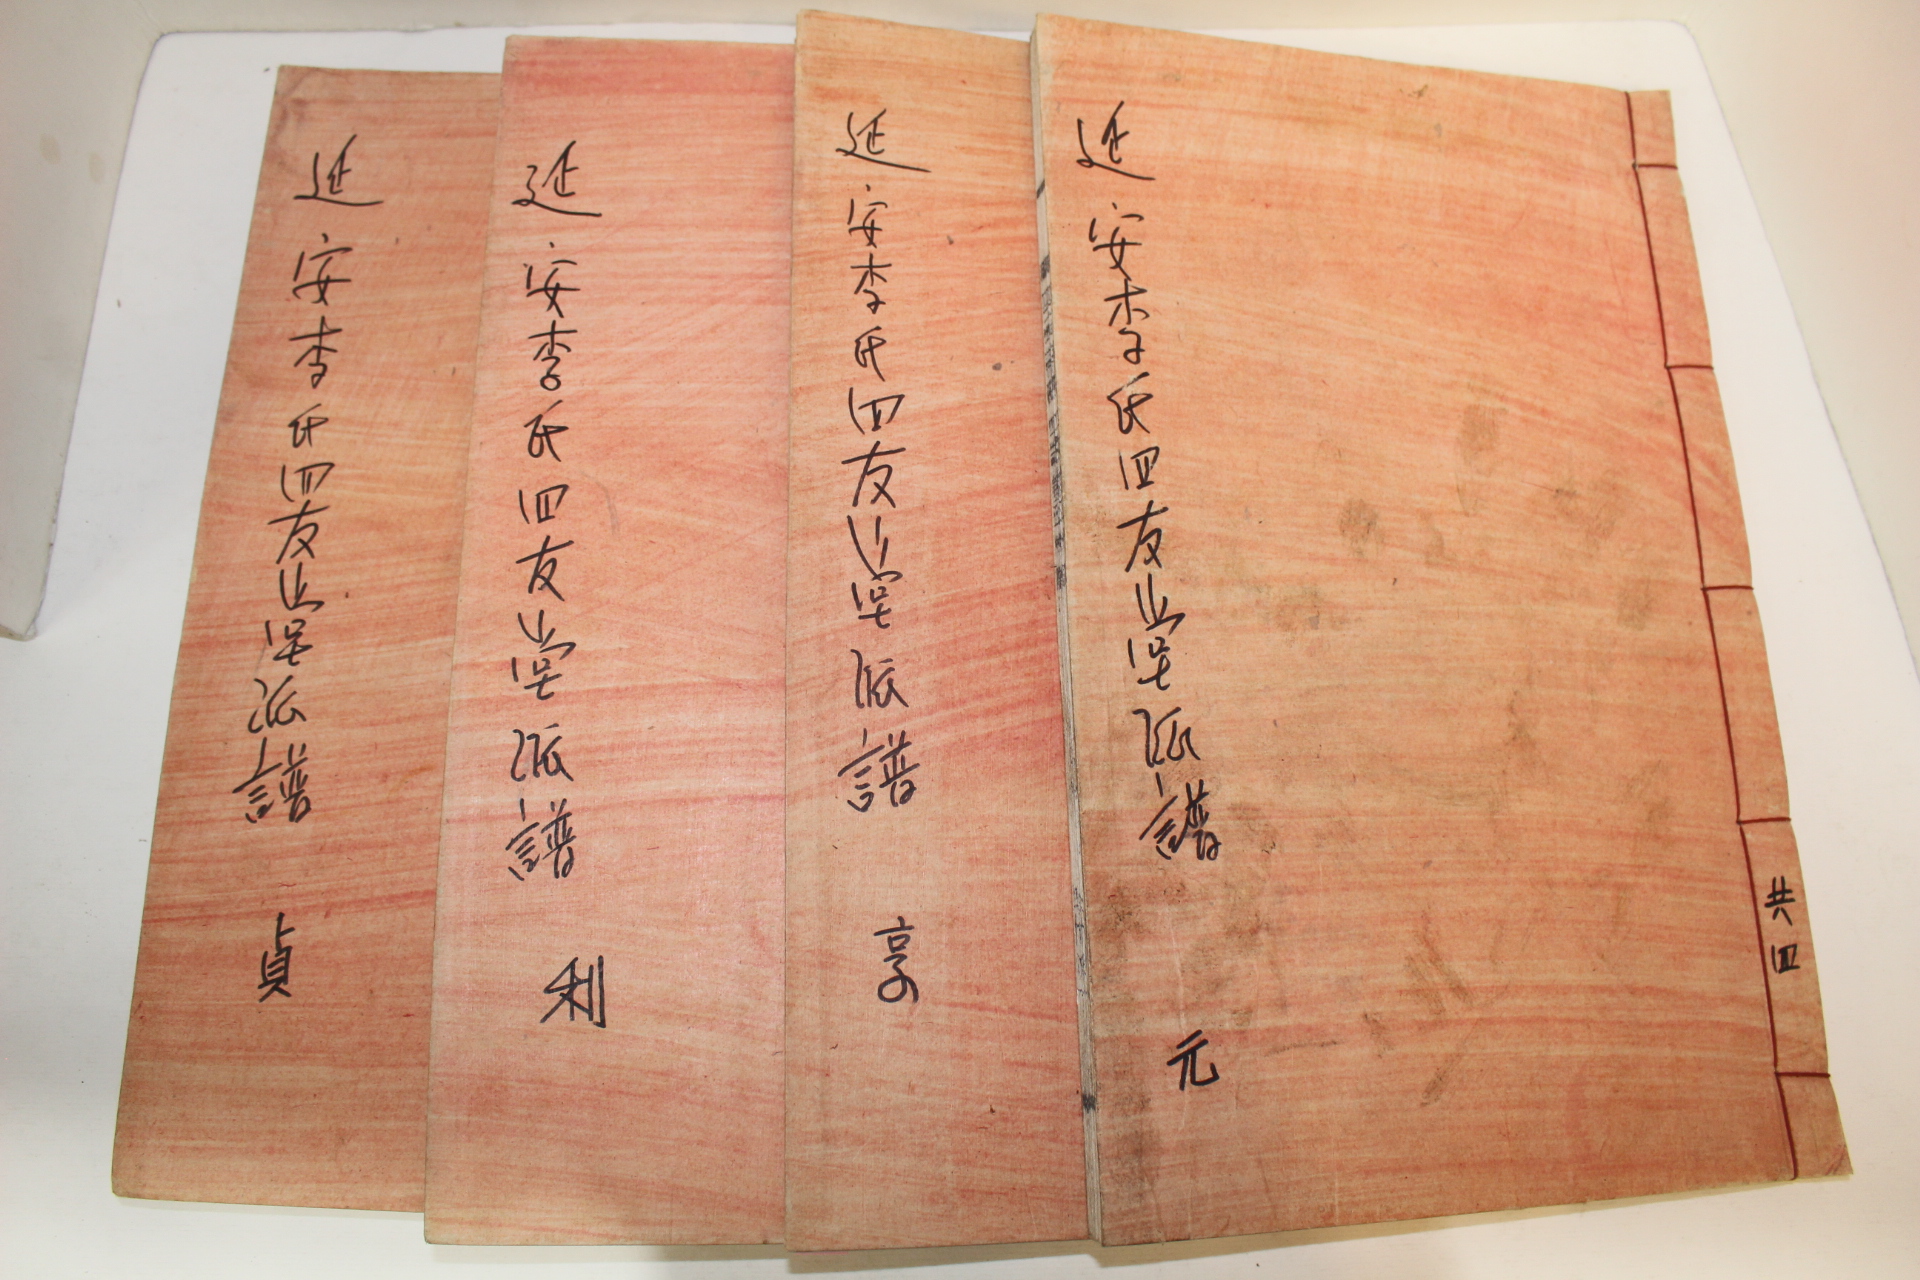 共四
延安李氏四友堂派譜 元
延安李氏四友堂派譜 亨
延安李氏四友堂派譜 利
延安李氏四友堂派譜 貞